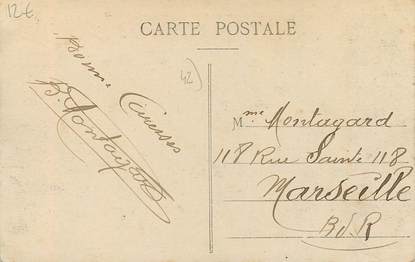 12€
CARTE POSTALE
Bonnes Caresses
B. Montagard
42)
Mme Montagard
118 Rue Sainte 118
Marseille
B d R